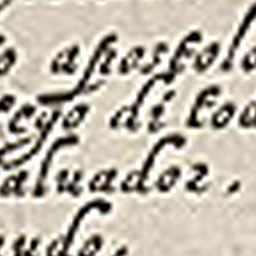 o apostolo
rego di tod
aluador.
udo,